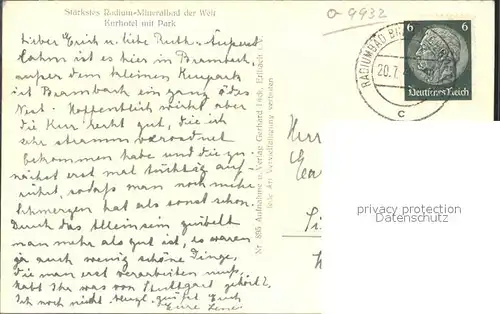 Stärkstes Radium-Mineralbad der Welt
Kurhotel mit Park
o-9932
Lieber Erich u. liebe Ruth. Äußerst
lahm ist es hier in Brambach,
außer dem kleinen Kurpark
ist Brambach ein ganz ödes
Nest. Hoffentlich wirkt aber
die Kur recht gut, die ich
sehr stramm verordnet
bekommen habe und die zu-
nächst erst mal tüchtig auf-
rührt, sodaß man noch mehr
Schmerzen hat als sonst schon.
Durch das Alleinsein grübelt
man mehr als gut ist, es waren
ja auch wenig schöne Dinge,
die man erst verarbeiten muß.
Habt Ihr was von Stuttgart gehört?
Ich noch nicht. grüßt Euch
Eure
Nr. 895 Aufnahme u. Verlag Gerhard
jede Art Vervielfältigung verboten
RADIUMBAD
20.7.
c
6 6
Deutsches Reich
Herr
privacy protection
AnsichtskartenVersand.com